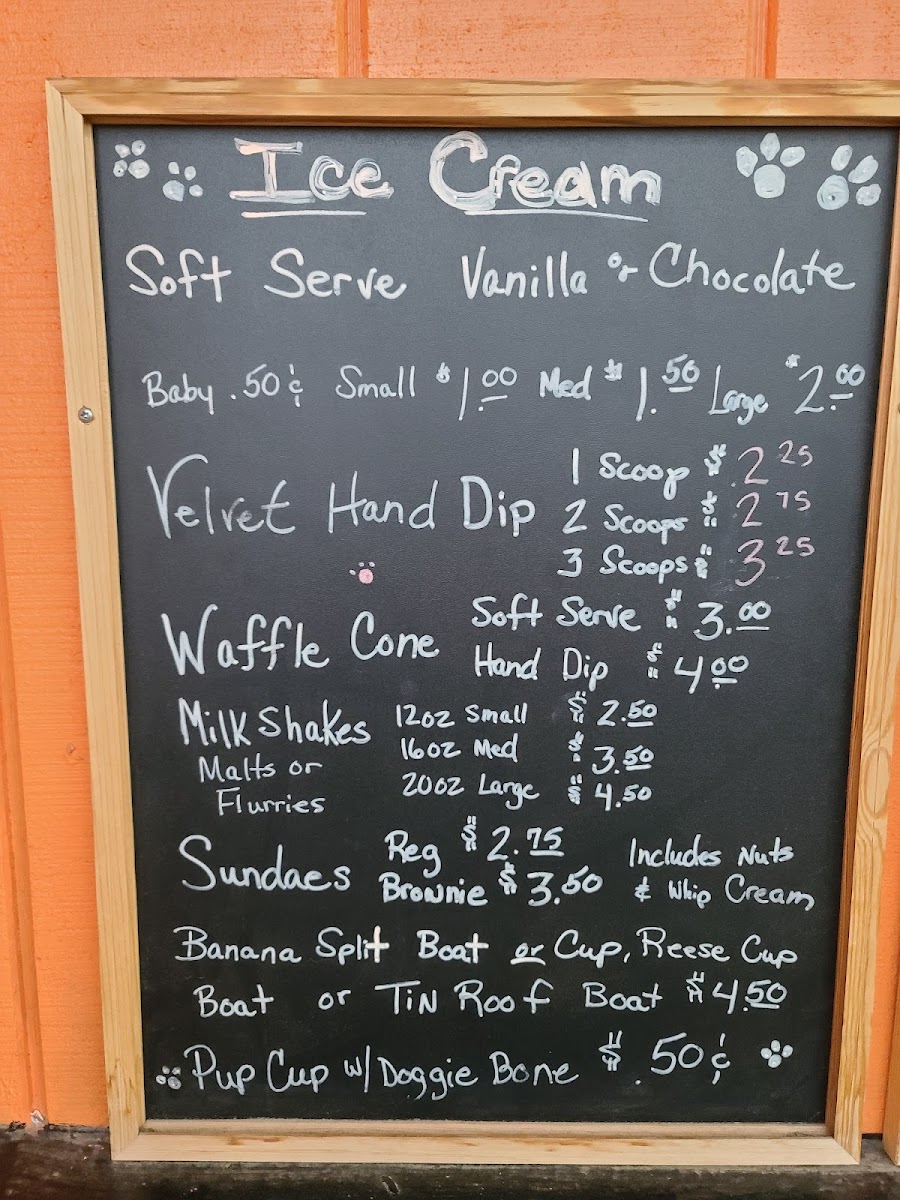 Ice Cream
Soft Serve Vanilla or Chocolate
Baby .50¢ Small $1.00 Med $1.50 Large $2.00
Velvet Hand Dip
1 Scoop $2.25
2 Scoops $2.75
3 Scoops $3.25
Waffle Cone
Soft Serve $3.00
Hand Dip $4.00
Milk Shakes
Malts or
Flurries
12oz Small $2.50
16oz Med $3.50
20oz Large $4.50
Sundaes
Reg $2.75
Brownie $3.50
Includes Nuts
& Whip Cream
Banana Split Boat or Cup, Reese Cup
Boat or Tin Roof Boat $4.50
Pup Cup w/ Doggie Bone $.50¢